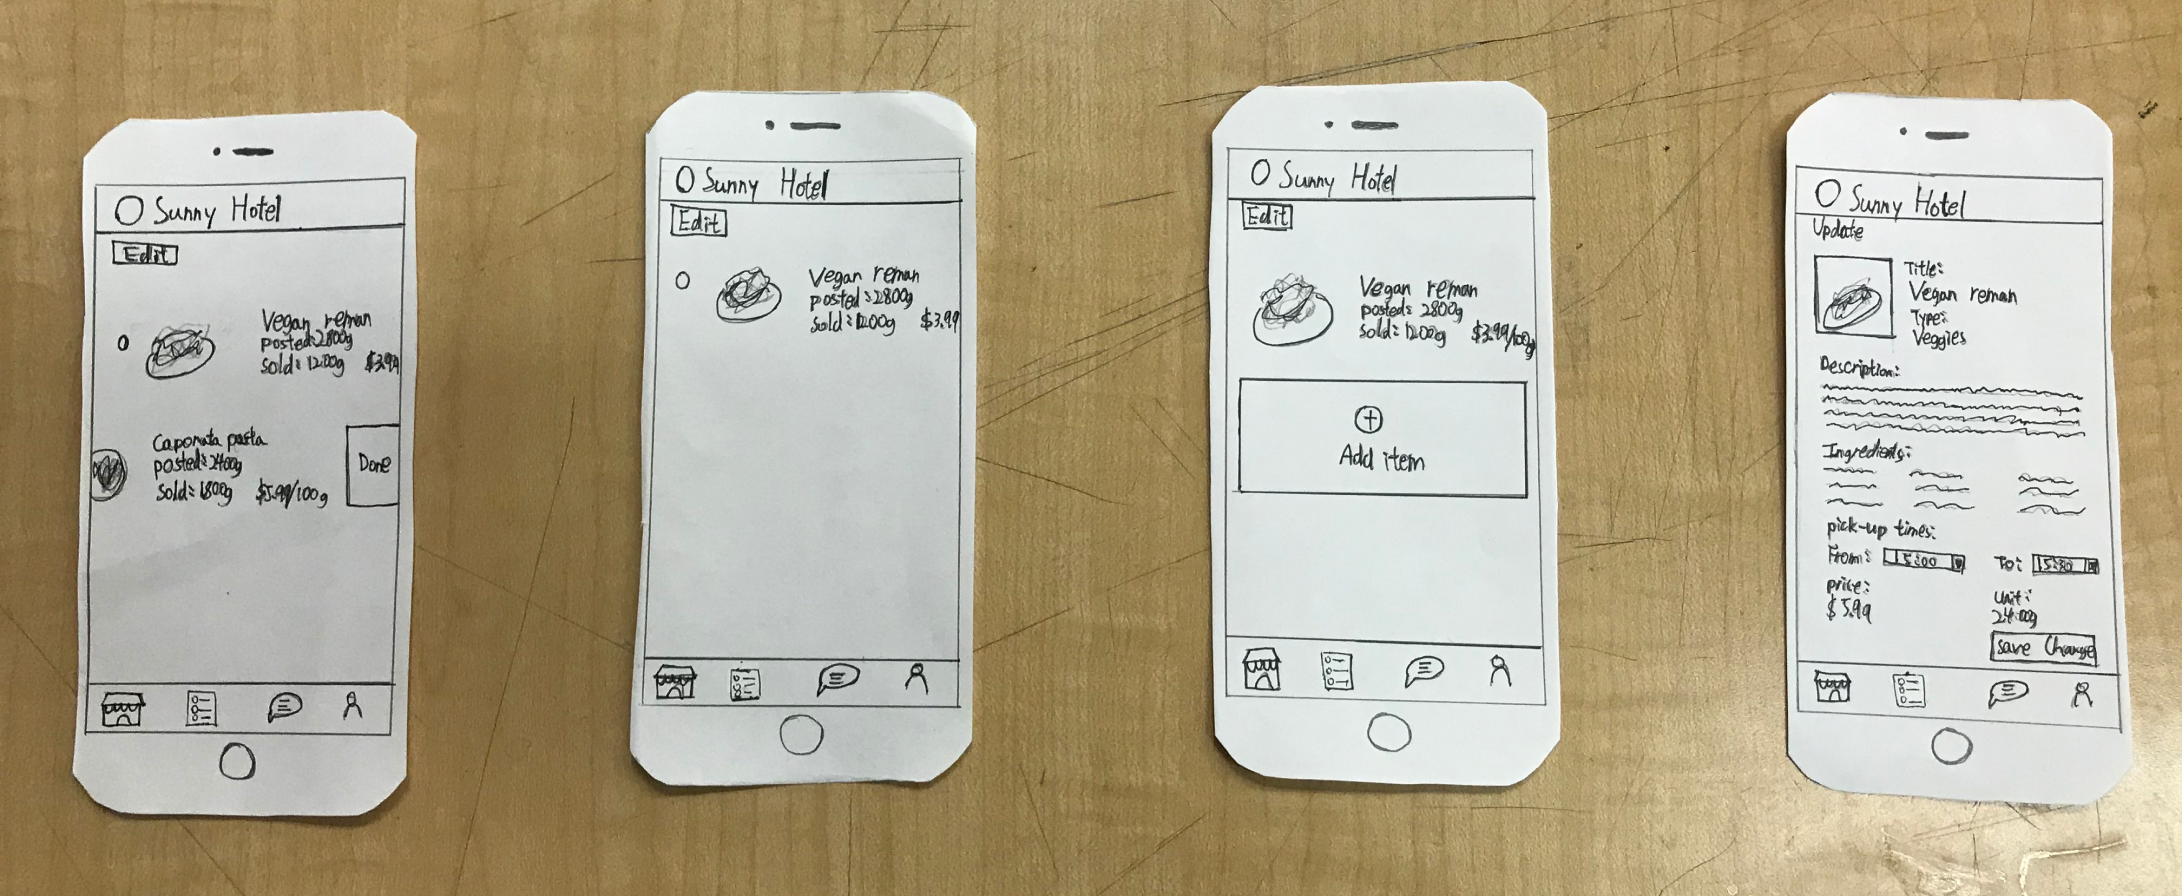 Sunny Hotel
Edit
Vegan reman
posted:2800g
sold:1200g $3.99
Caponata pasta
posted:2400g
sold:1800g $5.99/100g
Done
Sunny Hotel
Edit
Vegan reman
posted:2800g
sold:1200g $3.99
Sunny Hotel
Edit
Vegan reman
posted: 2800g
sold: 1200g $3.99/100g
Add item
Sunny Hotel
Update
Title:
Vegan reman
Type:
Veggies
Description:
Ingredients:
pick-up times:
From: 15:00 To: 15:30
price: Unit:
$5.99 2400g
save Change